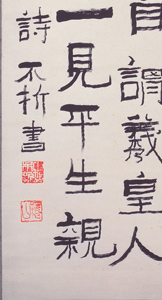 自謂羲皇人
一見平生親
詩 不折書